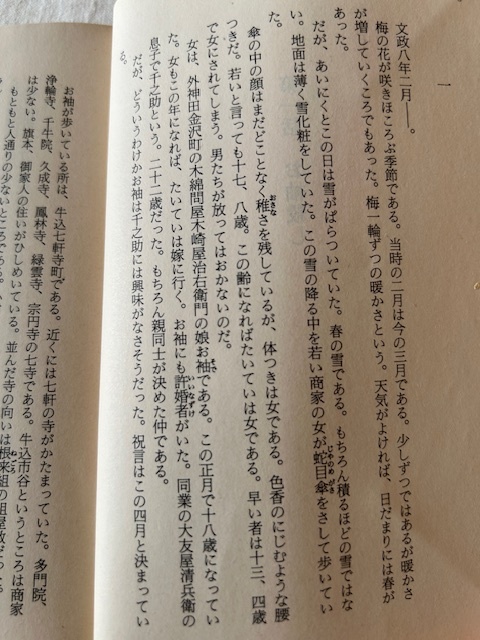 一
文政八年二月――。
梅の花が咲きほころぶ季節である。当時の二月は今の三月である。少しずつではあるが暖かさ
が増していくころでもあった。梅一輪ずつの暖かさという。天気がよければ、日だまりには春が
あった。
だが、あいにくとこの日は雪がぱらついていた。春の雪である。もちろん積るほどの雪ではな
い。地面は薄く雪化粧をしていた。この雪の降る中を若い商家の女が蛇目傘をさして歩いてい
た。
傘の中の顔はまだどことなく稚さを残しているが、体つきは女である。色香のにじむような腰
つきだ。若いと言っても十七、八歳。この齢になればたいていは女である。早い者は十三、四歳
で女にされてしまう。男たちが放ってはおかないのだ。
女は、外神田金沢町の木綿問屋木崎屋治右衛門の娘お袖である。この正月で十八歳になってい
た。女もこの年になれば、たいていは嫁に行く。お袖にも許婚者がいた。同業の大友屋清兵衛の
息子で千之助という。二十二歳だった。もちろん親同士が決めた仲である。
だが、どういうわけかお袖は千之助には興味がなさそうだった。祝言はこの四月と決まってい
る。
お袖が歩いている所は、牛込七軒寺町である。近くには七軒の寺がかたまっていた。多門院、
浄輪寺、千牛院、久成寺、鳳林寺、緑雲寺、宗円寺の七寺である。牛込市谷というところは商家
は少ない。旗本、御家人の住いがひしめいている。並んだ寺の向いは根来組の組屋敷だった。
もともと人通りの少ないところである。